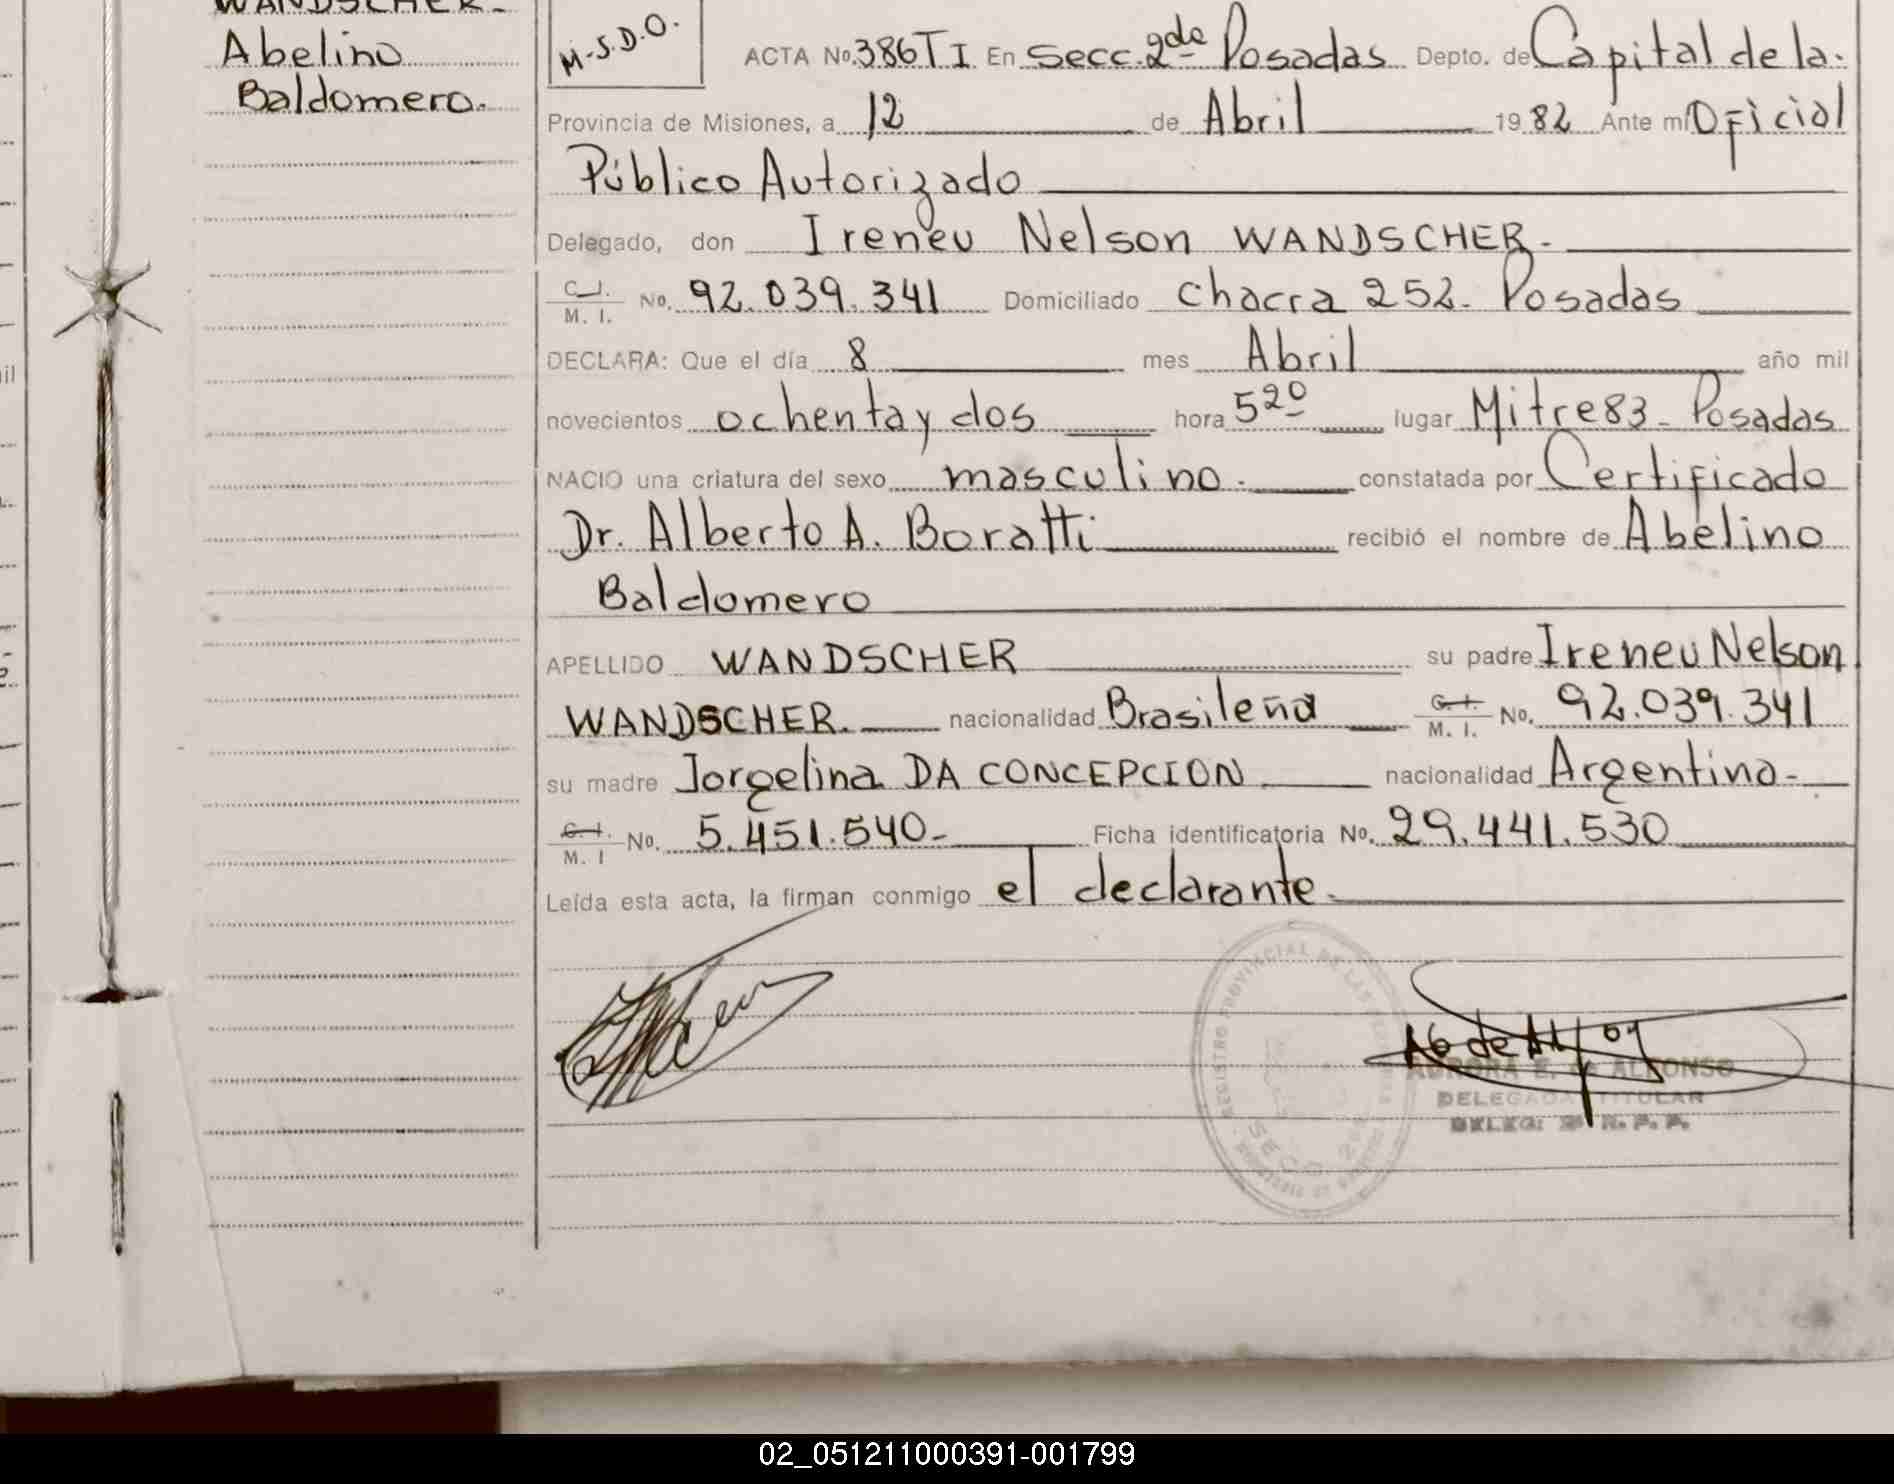 WANDSCHER.-
Abelino
Baldomero.
M.S.D.O.
ACTA No. 386 T I. En Secc. 2da Posadas Depto. de Capital de la.
Provincia de Misiones, a 12 de Abril 1982 Ante mí Oficial
Público Autorizado
Delegado, don Ireneu Nelson WANDSCHER.-
C.I. M. I. No. 92.039.341 Domiciliado chacra 252. Posadas
DECLARA: Que el día 8 mes Abril año mil
novecientos ochenta y dos hora 5 20 lugar Mitre 83 - Posadas
NACIO una criatura del sexo masculino. constatada por Certificado
Dr. Alberto A. Boratti recibió el nombre de Abelino
Baldomero
APELLIDO WANDSCHER su padre Ireneu Nelson
WANDSCHER. nacionalidad Brasileña C.I. M. I. No. 92.039.341
su madre Jorgelina DA CONCEPCION nacionalidad Argentina.-
C.I. M. I No. 5.451.540- Ficha identificatoria No. 29.441.530
Leída esta acta, la firman conmigo el declarante.
REGISTRO PROVINCIAL DE LAS PERSONAS
SECC. 2da
AURORA E. de ALFONSO
DELEGADA TITULAR
DELEG. 2ª R. P. P.
02_051211000391-001799